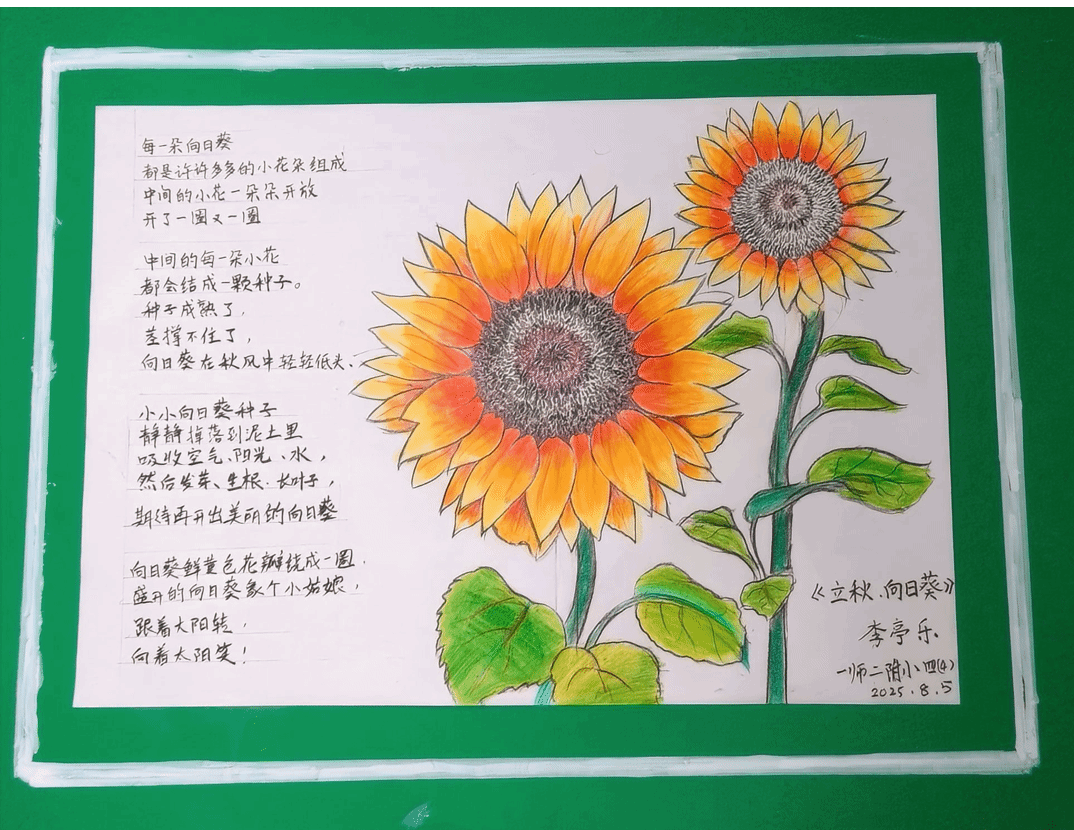 每一朵向日葵
都是许许多多的小花朵组成
中间的小花一朵朵开放
开了一圈又一圈
中间的每一朵小花
都会结成一颗种子。
种子成熟了，
茎撑不住了，
向日葵在秋风中轻轻低头、
小小向日葵种子
静静掉落到泥土里
吸收空气、阳光、水，
然后发芽、生根、长叶子，
期待再开出美丽的向日葵
向日葵鲜黄色花瓣绕成一圈，
盛开的向日葵象个小姑娘，
跟着太阳转，
向着太阳笑！
《立秋.向日葵》
李亭乐
一师二附小四(4)
2025.8.5